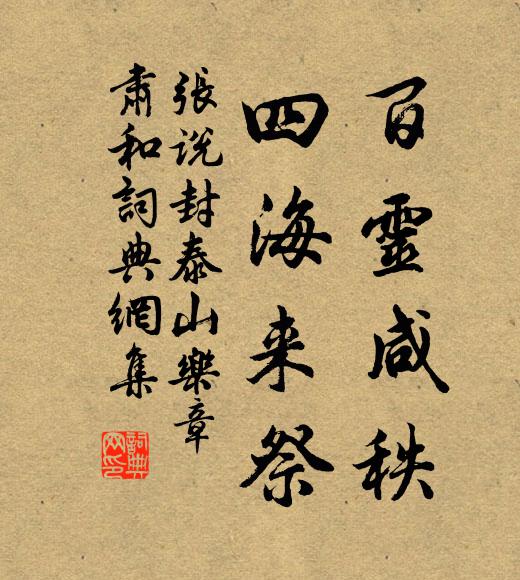 百靈咸秩
四海来祭
張说封泰山樂章
肅和詞典網集
詞典网印